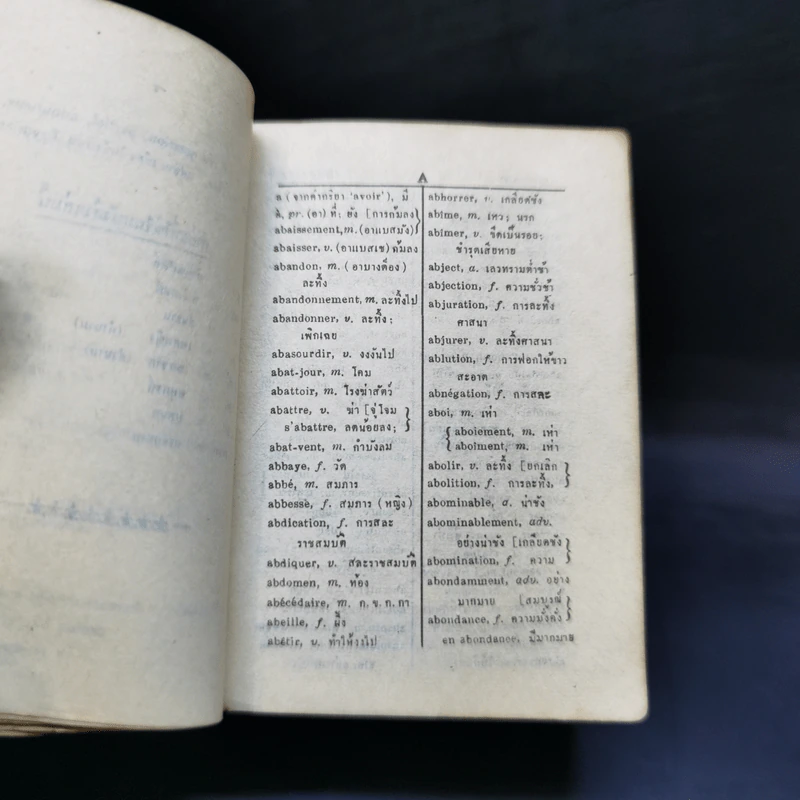 A
a (จากคำกริยา 'avoir'), มี
à, pr. (อา) ที่; ยัง [การก้มลง}
abaissement, m. (อาแบสมัง)}
abaisser, v. (อาแบสเซ) ก้มลง
abandon, m. (อาบางด็อง)
ละทิ้ง
abandonnement, m. ละทิ้งไป
abandonner, v. ละทิ้ง;
เพิกเฉย
abasourdir, v. งงงันไป
abat-jour, m. โคม
abattoir, m. โรงฆ่าสัตว์
abattre, v. ฆ่า [จู่โจม}
s'abattre, ลดน้อยลง;}
abat-vent, m. กำบังลม
abbaye, f. วัด
abbé, m. สมภาร
abbesse, f. สมภาร (หญิง)
abdication, f. การสละ
ราชสมบัติ
abdiquer, v. สละราชสมบัติ
abdomen, m. ท้อง
abécédaire, m. ก. ข. ก. กา
abeille, f. ผึ้ง
abêtir, v. ทำให้งงไป
abhorrer, v. เกลียดชัง
abîme, m. เหว; นรก
abîmer, v. ขีดเป็นรอย;
ชำรุดเสียหาย
abject, a. เลวทรามต่ำช้า
abjection, f. ความชั่วช้า
abjuration, f. การละทิ้ง
ศาสนา
abjurer, v. ละทิ้งศาสนา
ablution, f. การฟอกให้ขาว
สะอาด
abnégation, f. การสละ
aboi, m. เห่า
{aboiement, m. เห่า
{aboîment, m. เห่า
abolir, v. ละทิ้ง [ยกเลิก}
abolition, f. การละทิ้ง,}
abominable, a. น่าชัง
abominablement, adv.
อย่างน่าชัง [เกลียดชัง}
abomination, f. ความ}
abondamment, adv. อย่าง
มากมาย [สมบูรณ์}
abondance, f. ความมั่งคั่ง}
en abondance, มีมากมาย